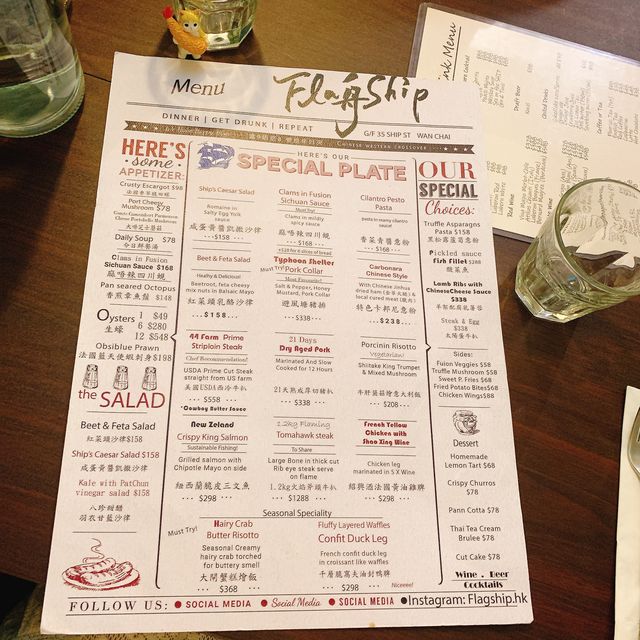 Menu
Flag Ship
DINNER | GET DRUNK | REPEAT
G/F 35 SHIP ST WAN CHAI
CHINESE WESTERN CROSSOVER
HERE'S
some
APPETIZER:
Crusty Escargot $98
Port Cheesy
Mushroom $78
Comte Camembert Parmesan
Cheese Portobello Mushroom
Daily Soup $78
今日鮮餐湯
Clams in Fusion
Sichuan Sauce $168
麻唔辣四川蜆
Pan seared Octopus
香煎章魚鬚 $148
Oysters 1 $49
生蠔 6 $280
12 $548
Obsiblue Prawn
法國藍天使蝦刺身 $198
the SALAD
Beet & Feta Salad
紅菜頭沙律 $158
Ship's Caesar Salad $158
咸蛋黃醬凱撒沙律
Kale with PatChun
vinegar salad $158
八珍甜醋
羽衣甘藍沙律
HERE'S OUR
SPECIAL PLATE
Ship's Caesar Salad
Romaine in
Salty Egg Yolk
sauce
咸蛋黃醬凱撒沙律
---$158---
Beet & Feta Salad
Healthy & Delicious!
Beetroot, feta cheesy
mix nuts in Balsaic Mayo
紅菜頭乳酪沙律
---$158---
44 Farm Prime
Striploin Steak
Chef Recommendation!
USDA Prime Cut Steak
straight from US farm
美國USDA西冷牛扒
--- $558 ---
*Cowboy Butter Sauce
New Zeland
Crispy King Salmon
Sustainable Fishing!
Grilled salmon with
Chipotle Mayo on side
紐西蘭脆皮三文魚
--- $298 ---
Clams in Fusion
Sichuan Sauce
Must Try!
Clams in mildly
spicy sauce
麻唔辣四川蜆
---$168---
+$28 for 6 slices of bread
Typhoon Shelter
Must Try! Pork Collar
Most Favourite!
Salt & Pepper, Honey
Mustard, Pork Collar
避風塘豬頸
--$338--
21 Days
Dry Aged Pork
Marinated And Slow
Cooked for 12 Hours
21天熟成厚切豬扒
--- $338 ---
1.2kg Flaming
Tomahawk steak
To Share
Large Bone in thick cut
Rib eye steak serve
on flame
1.2kg火焰斧頭牛扒
--- $1288 ---
Cilantro Pesto
Pasta
Pasta in many cilantro
sauce!
香菜青醬意粉
--- $168 ---
Carbonara
Chinese Style
With Chinese Jinhua
dried ham (金華火腿) &
local cured meat (臘肉)
特色卡邦尼意粉
---$238---
Porcinin Risotto
Vegetarian!
Shiitake King Trumpet
& Mixed Mushroom
牛肝菌菇燴意大利飯
--- $208 ---
French Yellow
Chicken with
Shao Xing Wine
Chicken leg
marinated in S X Wine
紹興酒法國黃油雞髀
--- $298 ---
Seasonal Speciality
Must Try!
Hairy Crab
Butter Risotto
Seasonal Creamy
hairy crab torched
for buttery smell
大閘蟹糕燴飯
--- $368 ---
Fluffy Layered Waffles
Confit Duck Leg
French confit duck leg
in croissant like waffles
千層脆窩夫油封鴨髀
--- $298 ---
Niceeee!
OUR
SPECIAL
Choices:
Truffle Asparagns
Pasta $158
黑松露蘆荀意粉
Pickled sauce
Fish Fillet $288
酸菜魚
Lamb Ribs with
ChineseCheese Sauce
$338
羊架配腐乳薯蓉
Steak & Egg
$338
太陽蛋牛扒
Sides:
Fuion Veggies $58
Truffle Mushroom $58
Sweet P. Fries $68
Fried Potato Bites$68
Chicken Wings$88
Dessert
Homemade
Lemon Tart $68
Crispy Churros
$78
Pann Cotta $78
Thai Tea Cream
Brulee $78
Cut Cake $78
Wine . Beer
Cocktails
FOLLOW US: ● SOCIAL MEDIA ● Social Media ● SOCIAL MEDIA ●Instagram: Flagship.hk
ink Menu
Draft Beer
Child Drinks
Coffee or Tea